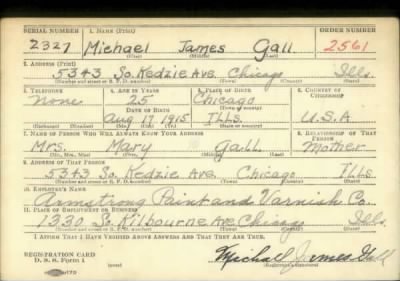 SERIAL NUMBER 1. NAME (Print) ORDER NUMBER
2327 Michael James Gall 2561
(First) (Middle) (Last)
2. ADDRESS (Print)
5343 So. Kedzie Ave. Chicago Ills.
(Number and street or R. F. D. number) (Town) (County) (State)
3. TELEPHONE 4. AGE IN YEARS 5. PLACE OF BIRTH 6. COUNTRY OF CITIZENSHIP
None 25 Chicago
DATE OF BIRTH (Town or county)
Aug 17 1915 ILLS. U.S.A.
(Exchange) (Number) (Mo.) (Day) (Yr.) (State or country)
7. NAME OF PERSON WHO WILL ALWAYS KNOW YOUR ADDRESS 8. RELATIONSHIP OF THAT PERSON
Mrs. Mary Gall Mother
(Mr., Mrs., Miss) (First) (Middle) (Last)
9. ADDRESS OF THAT PERSON
5343 So. Kedzie Ave. Chicago ILLS
(Number and street or R. F. D. number) (Town) (County) (State)
10. EMPLOYER'S NAME
Armstrong Paint and Varnish Co.
11. PLACE OF EMPLOYMENT OR BUSINESS
1330 So. Kilbourne Ave. Chicago Ills.
(Number and street or R. F. D. number) (Town) (County) (State)
I AFFIRM THAT I HAVE VERIFIED ABOVE ANSWERS AND THAT THEY ARE TRUE.
REGISTRATION CARD
D. S. S. Form 1 (over) Michael James Gall
(Registrant's signature)